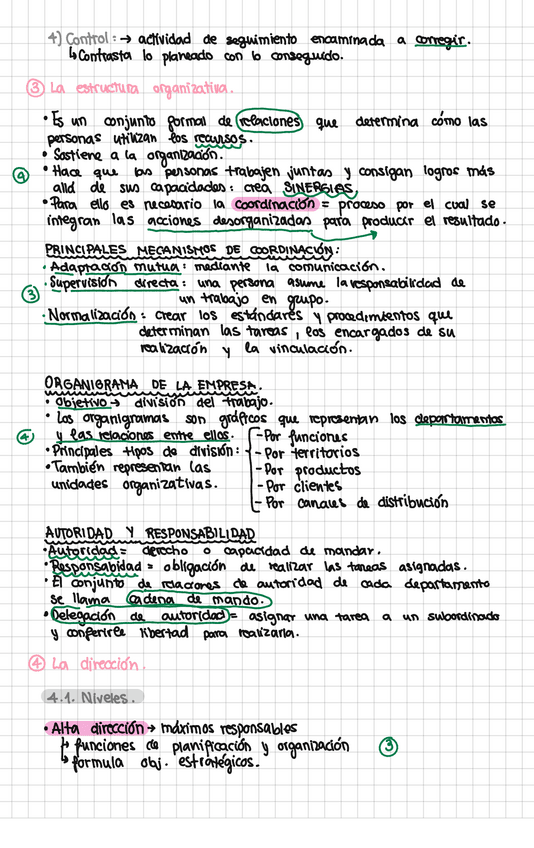 4) Control: → actividad de seguimiento encaminada a corregir.
↳ Contrasta lo planeado con lo conseguido.
③ La estructura organizativa.
• Es un conjunto formal de relaciones que determina cómo las
personas utilizan los recursos.
• Sostiene a la organización.
④ • Hace que las personas trabajen juntas y consigan logros más
allá de sus capacidades: crea SINERGIAS
• Para ello es necesario la coordinación = proceso por el cual se
integran las acciones desorganizadas para producir el resultado.
PRINCIPALES MECANISMOS DE COORDINACIÓN:
• Adaptación mutua: mediante la comunicación.
③ • Supervisión directa: una persona asume la responsabilidad de
un trabajo en grupo.
• Normalización: crear los estándares y procedimientos que
determinan las tareas, los encargados de su
realización y la vinculación.
ORGANIGRAMA DE LA EMPRESA.
• Objetivo → división del trabajo.
• Los organigramas son gráficos que representan los departamentos
④ y las relaciones entre ellos.
• Principales tipos de división:
- Por funciones
- Por territorios
- Por productos
- Por clientes
- Por canales de distribución
• También representan las
unidades organizativas.
AUTORIDAD Y RESPONSABILIDAD
• Autoridad = derecho o capacidad de mandar.
• Responsabidad = obligación de realizar las tareas asignadas.
• El conjunto de relaciones de autoridad de cada departamento
se llama cadena de mando.
• Delegación de autoridad = asignar una tarea a un subordinado
y conferirle libertad para realizarla.
④ La dirección.
4.1. Niveles.
• Alta dirección → máximos responsables
↳ funciones de planificación y organización ③
↳ formula obj. estratégicos.